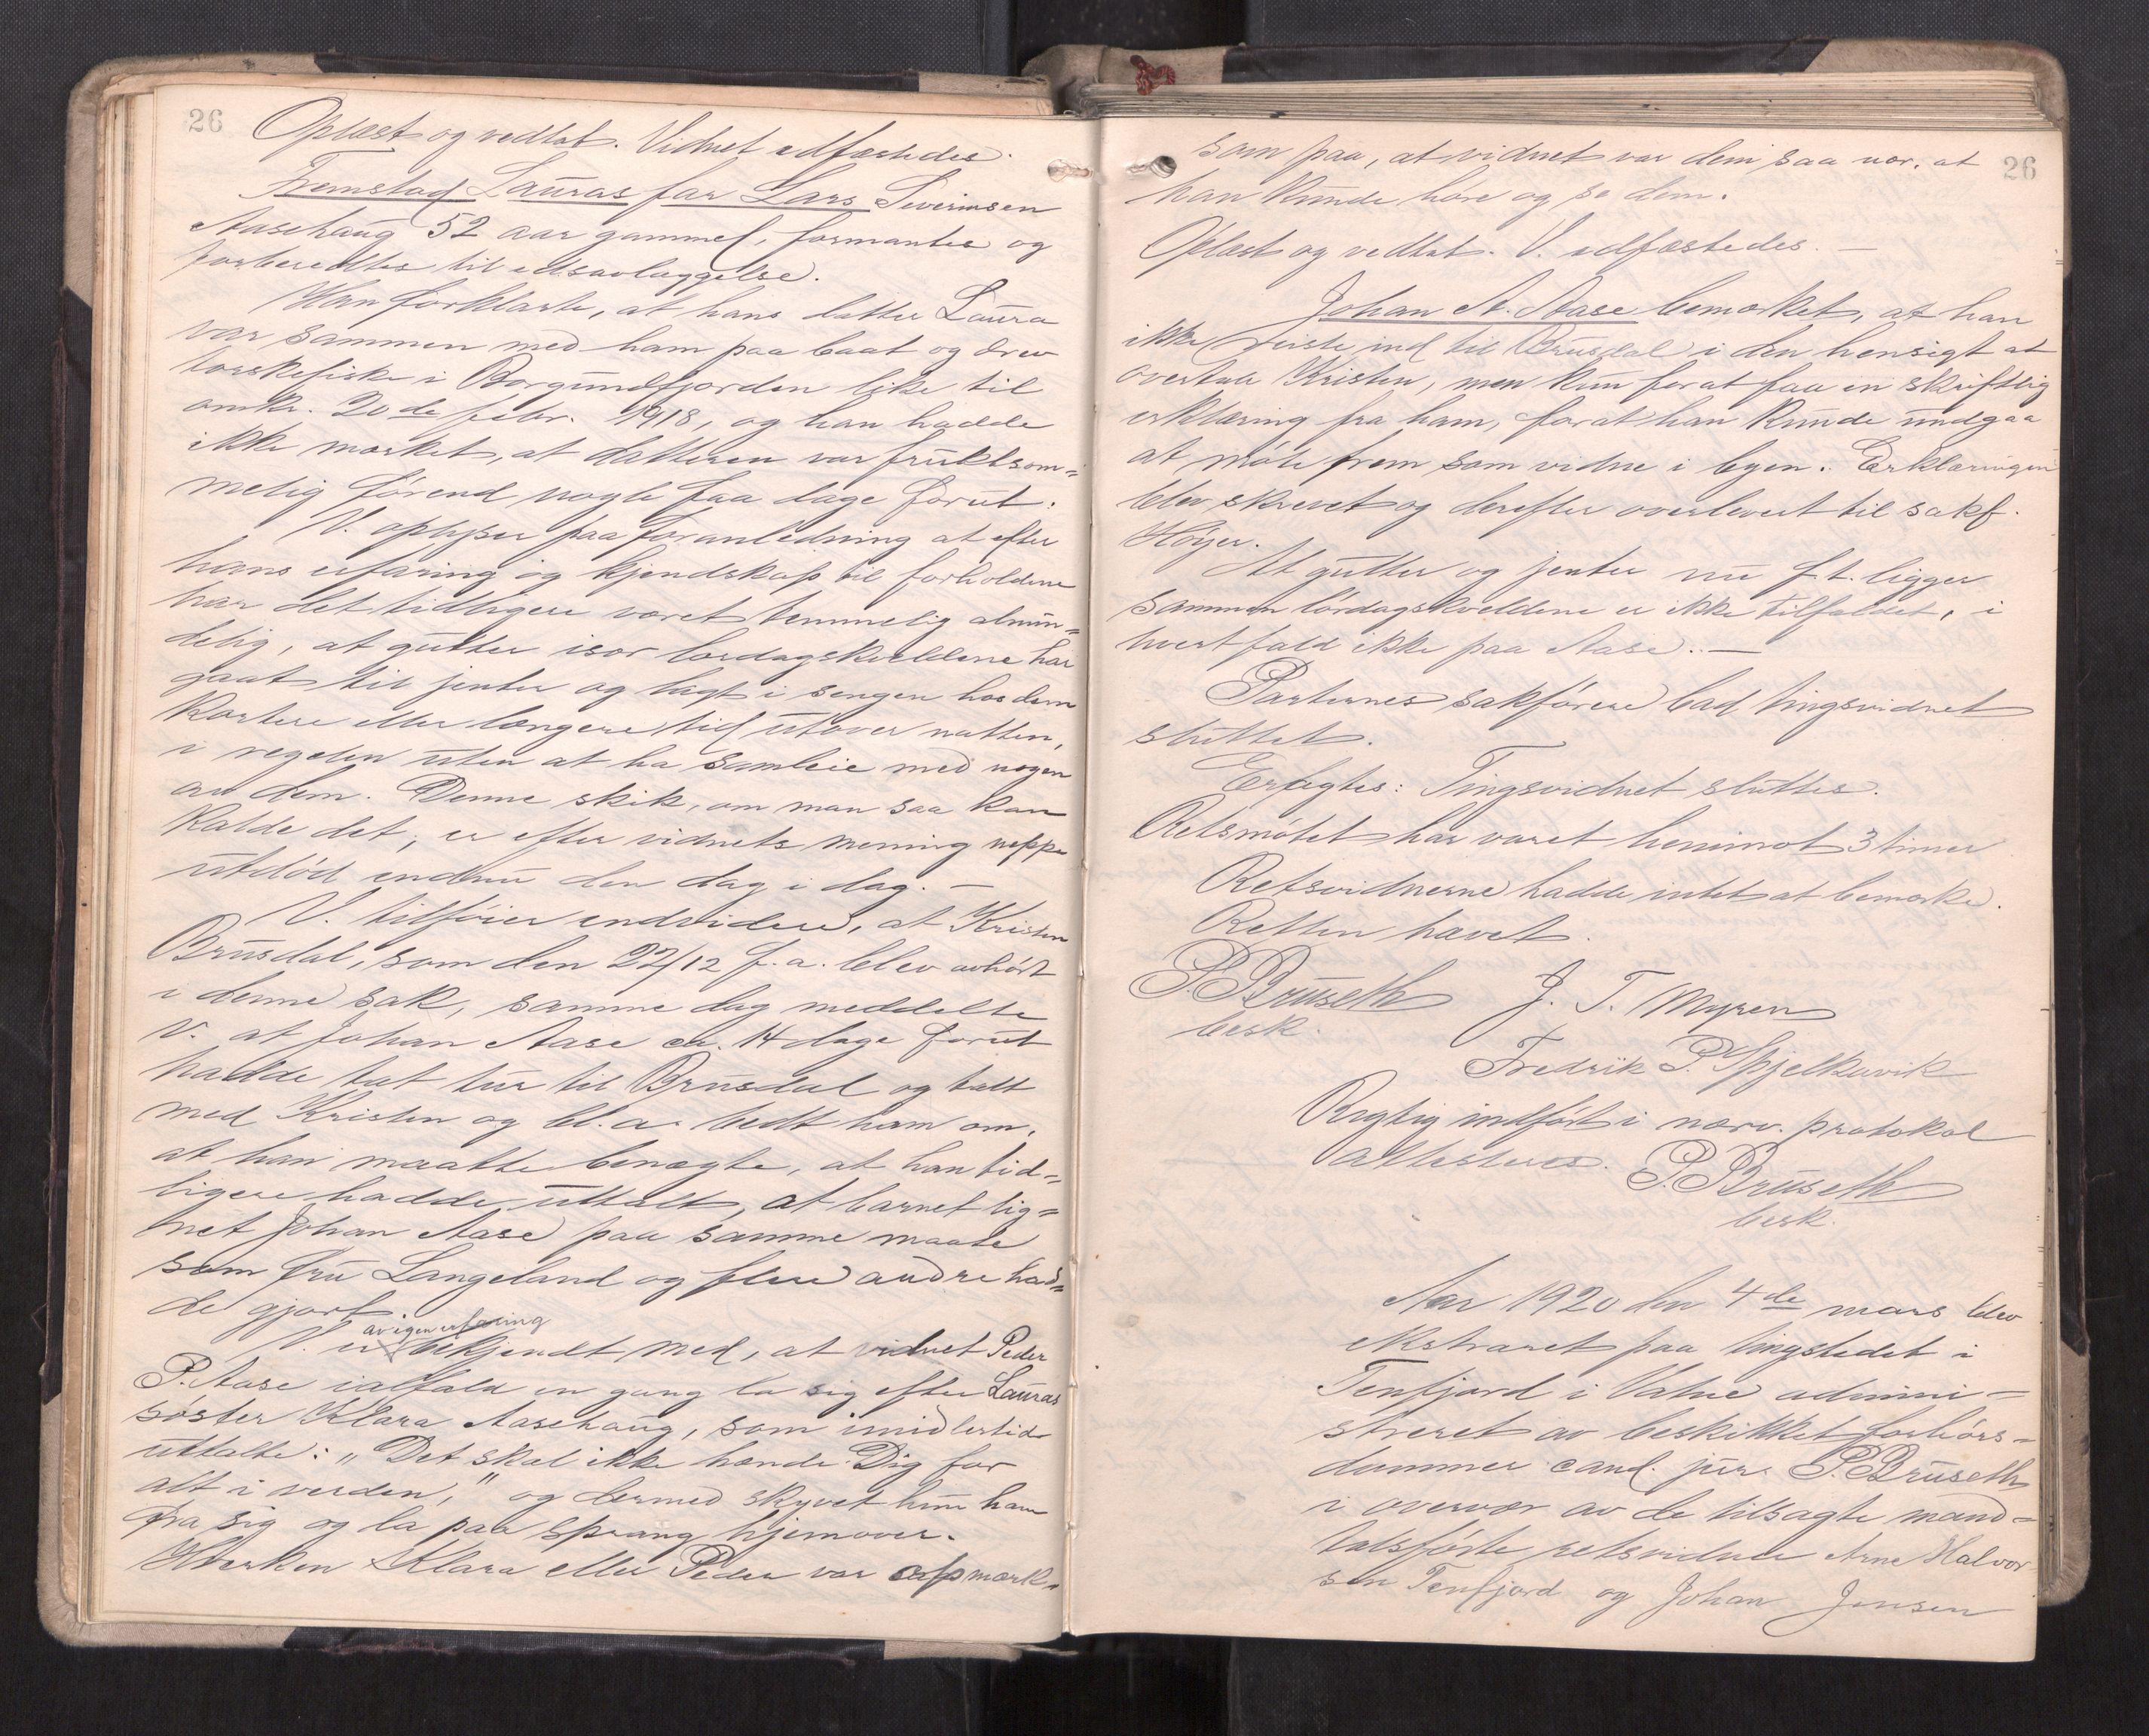 26
Oplæst og vedtat. Vidnet edfæstedes.
Fremstod Lauras far Lars Severinsen
Aasehaug 52 aar gammel, formantes og
forberedtes til edsavlæggelse.
Han forklarte, at hans datter Laura
var sammen med ham paa baat og drev
torskefiske i Borgundfjorden like til
omkr. 20de febr. 1918, og han hadde
ikke mærket, at datteren var fruktsom=
melig førend nogle faa dage forut.
V. oplyser paa foranledning at efter
hans erfaring og kjendskap til forholdene
har det tidligere været temmelig almin=
delig, at gutter især lørdagskveldene har
gaat til jenter og lagt i sengen hos dem
kortere eller længere tid utover natten,
i regelen uten at ha samleie med nogen
av dem. Denne skik, om man saa kan
kalde det, er efter vidnets mening neppe
utdød endnu den dag i dag. —
V. tilføier endvidere, at Kristen
Brusdal, som den 22/12 f. a. blev avhørt
i denne sak, samme dag meddelte
V. at Johan Aase ca. 14 dage forut
hadde tat tur til Brusdal og talt
med Kristen og bl. a. bedt ham om,
at han maatte benægte, at han tid=
ligere hadde uttalt, at barnet lig=
net Johan Aase paa samme maate
som fru Langeland og flere andre had=
de gjort.
av egen erfaring
V. er bekjendt med, at vidnet Peder
P. Aase ialfald en gang la sig efter Lauras
søster Klara Aasehaug, som imidlertid
uttalte: „Det skal ikke hænde Dig for
alt i verden," og dermed skyvet hun ham
fra sig og la paa sprang hjemover.
Hverken Klara eller Peder var opmærk=
26
som paa, at vidnet var dem saa nær, at
han kunde høre og se dem.
Oplæst og vedtat. V. edfæstedes. —
Johan A. Aase bemærket, at han
ikke reiste ind til Brusdal i den hensigt at
overtale Kristen, men kun for at faa en skriftlig
erklæring fra ham, forat han kunde undgaa
at møte frem som vidne i byen. Erklæringen
blev skrevet og derefter overlevert til sakf.
Høyer.
At gutter og jenter nu f. t. ligger
sammen lørdagskveldene er ikke tilfældet, i
hvertfald ikke paa Aase. —
Parternes sakførere bad tingsvidnet
sluttet.
Eragtes: Tingsvidnet sluttes.
Retsmøtet har varet henimot 3 timer
Retsvidnerne hadde intet at bemærke.
Retten hævet.
P. Bruseth J. T. Myren
besk.
Fredrik P. Spjelkavik
Rigtig indført i nærv. protokol
attesteres. P. Bruseth
besk.
Aar 1920 den 4de mars blev
ekstraret paa tingstedet i
Tenfjord i Vatne admini=
streret av beskikket forhørs=
dommer cand. jur. P. Bruseth
i overvær av de tilsagte mand=
talsførte retsvidner Arne Halvor=
sen Tenfjord og Johan Jensen